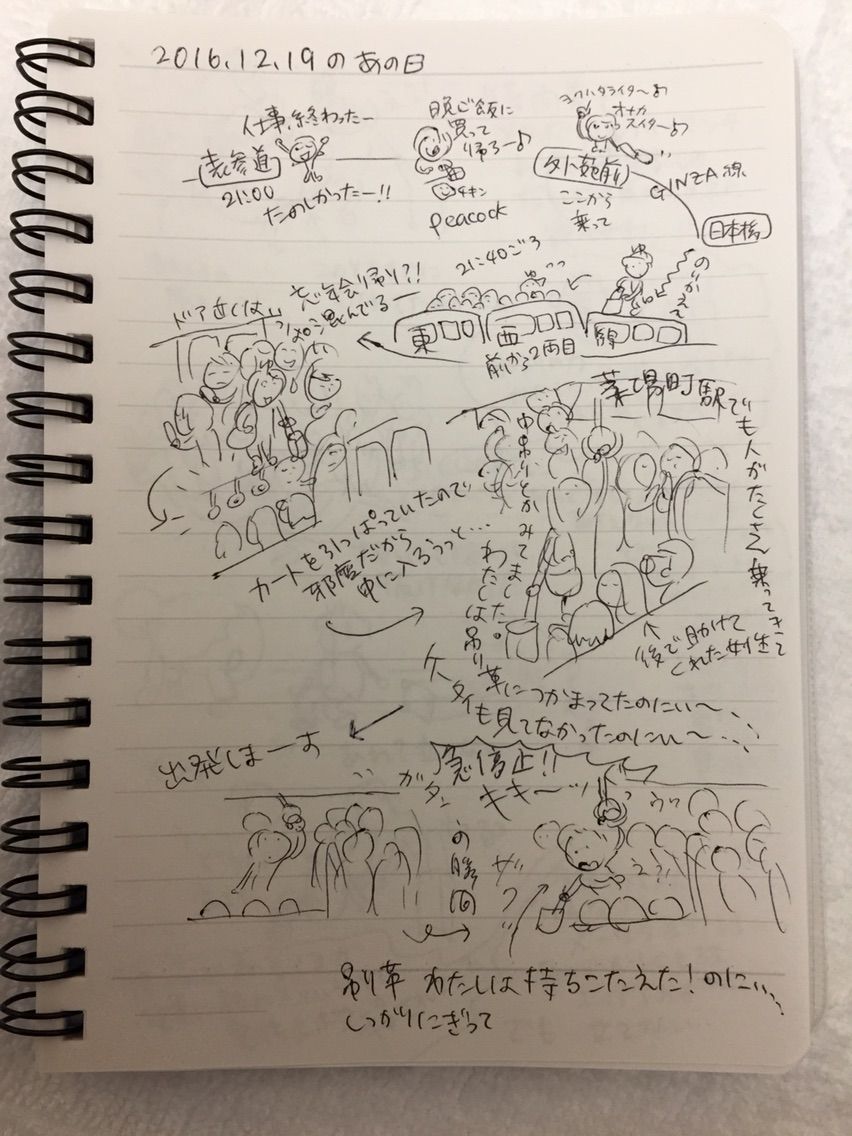 2016.12.19のあの日
仕事、終わったー
表参道
21:00
たのしかったー!!
晩ご飯に
買って
帰ろー♪
チキン
peacock
ヨクハタライター♪
オナカ
スイター♪
外苑前
ここから
乗って
GINZA線
日本橋
のりかえて
21:40ごろ
東西線
前から2両目
忘年会帰り?!
ドア近くは、
混んでるー
カートを引っぱっていたので
邪魔だから
中に入ろうっと…
茅場町駅でも人がたくさん乗ってきて
中吊りとかみてました。
わたしは吊り革につかまってたのにぃ〜
ケータイも見てなかったのにぃ〜
後で助けて
くれた女性
出発しまーす
ガタン
急停止!!
キキーッ
の瞬間
ザッ
ウッ
吊り革
しっかりにぎって
わたしは持ちこたえた!のに…